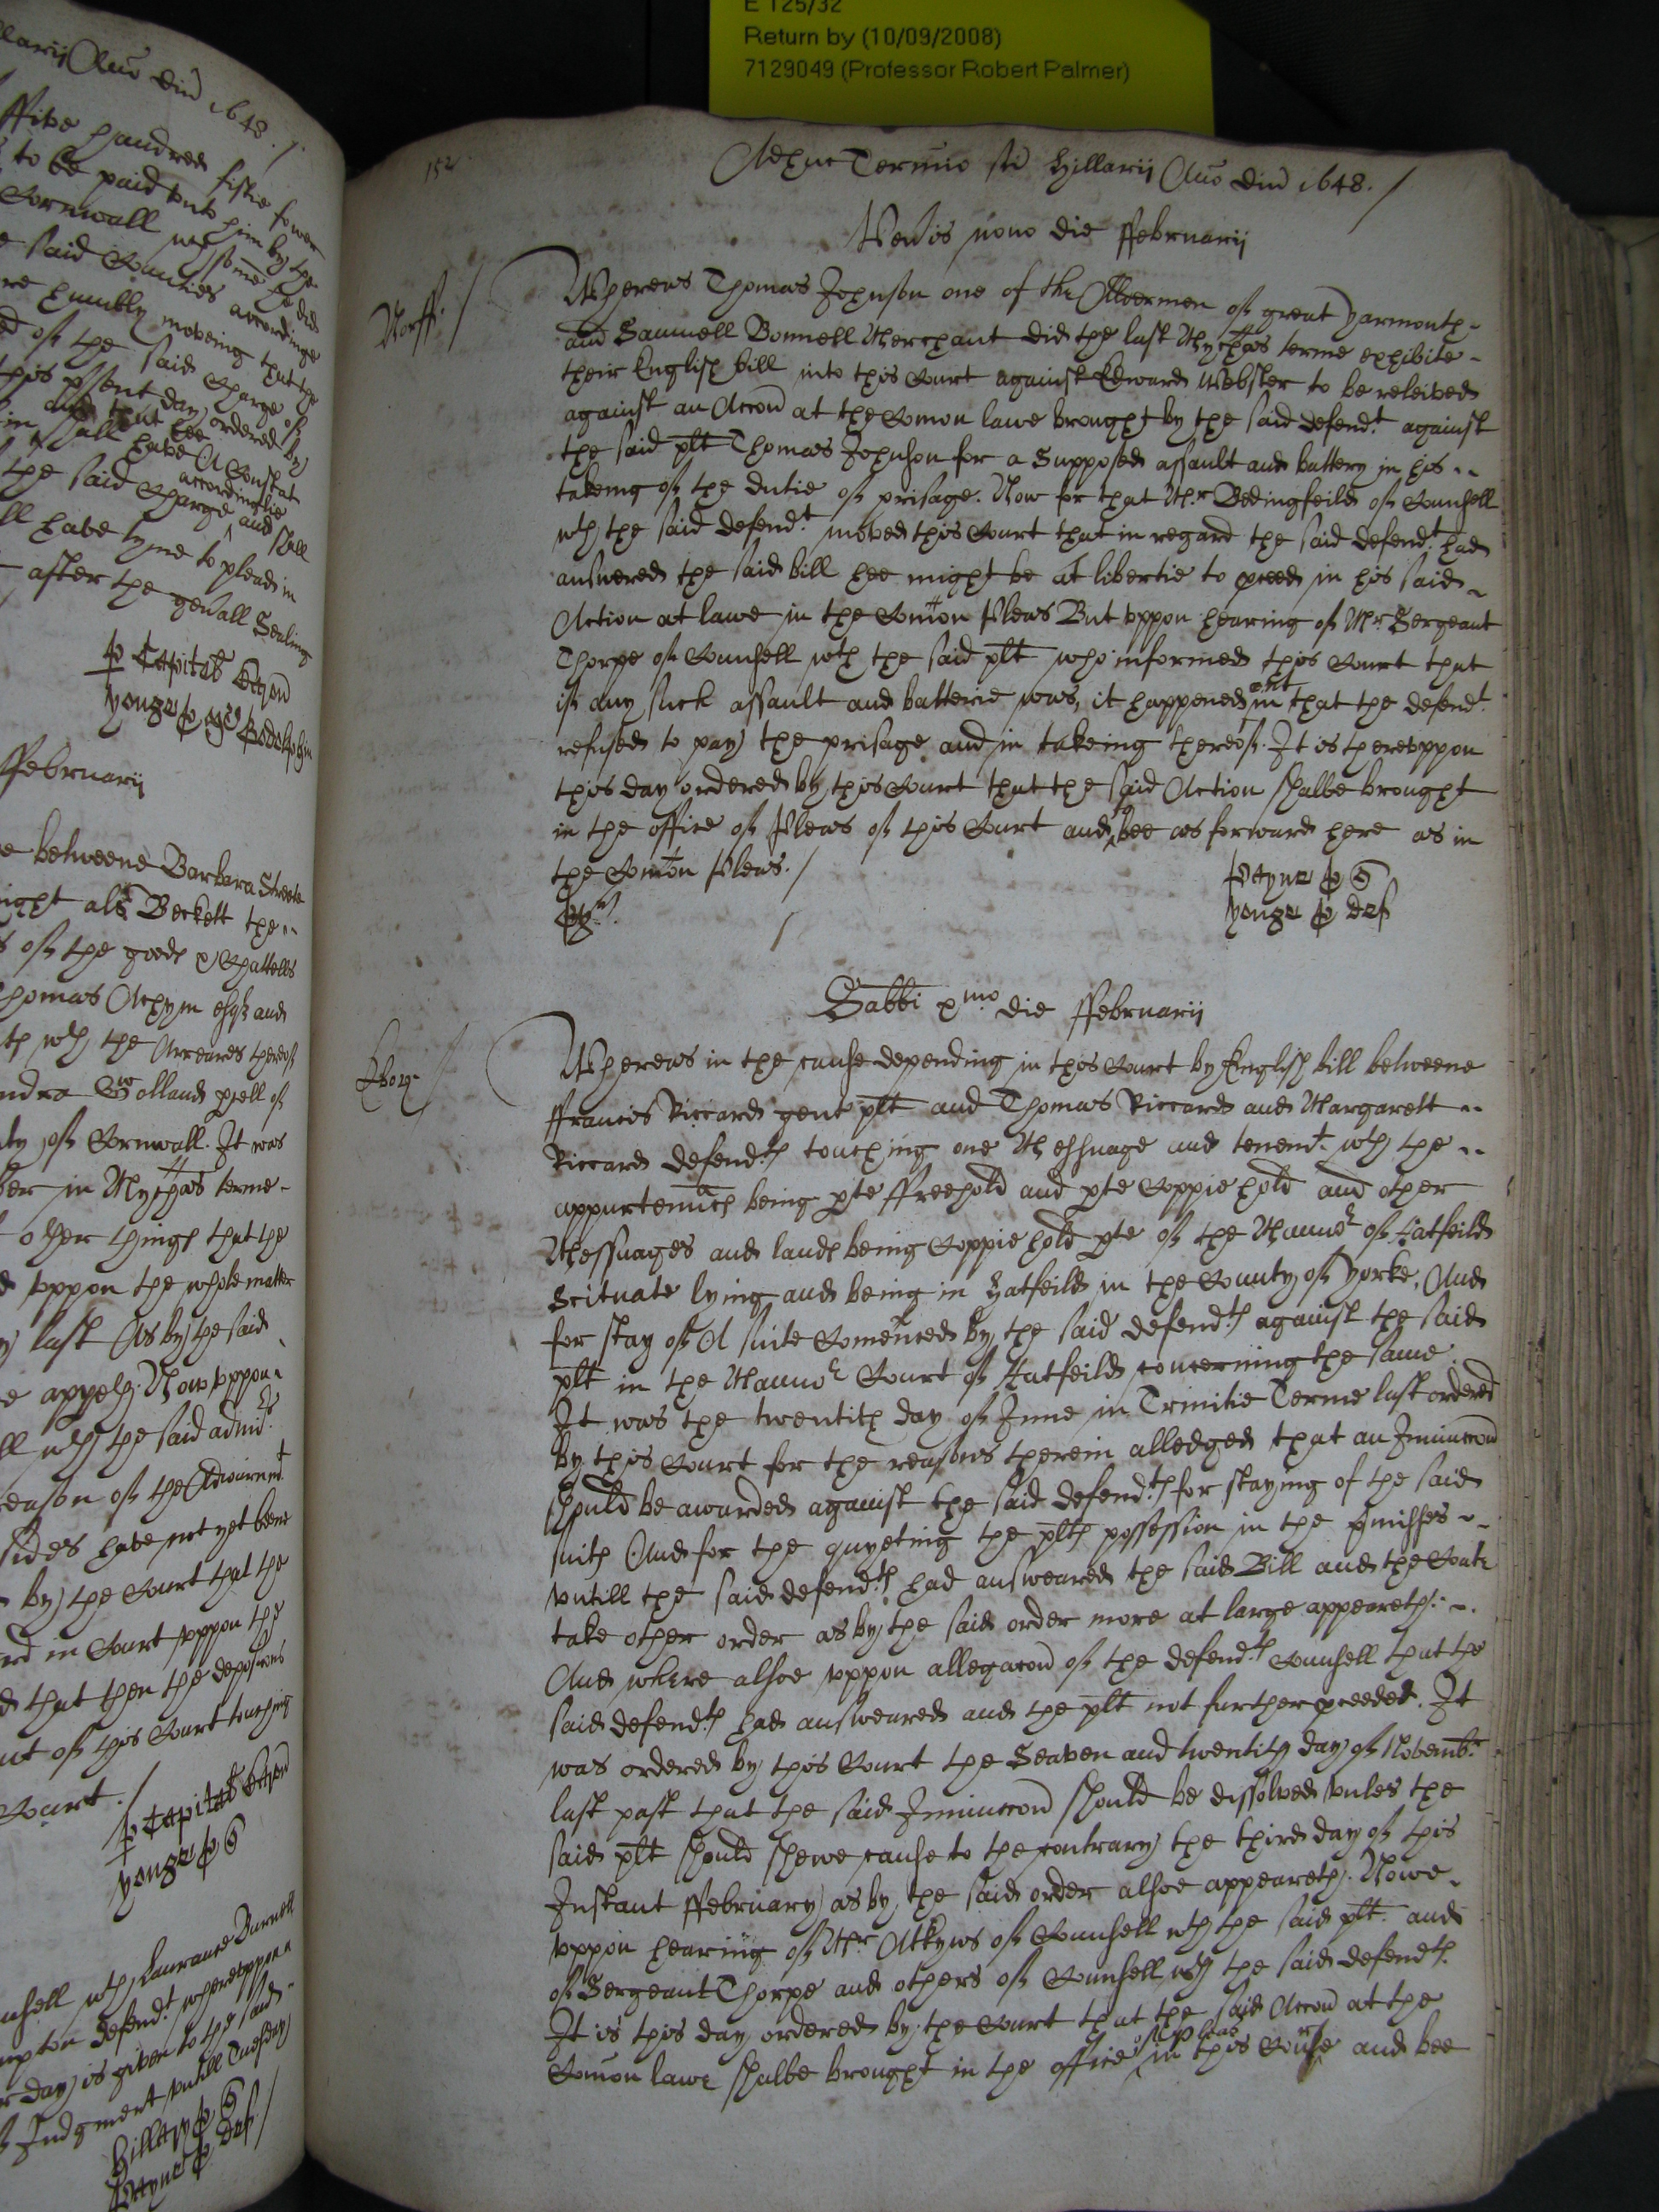 E 125/32
Return by (10/09/2008)
7129049 (Professor Robert Palmer)
llarij Anno dni 1648. /
ffive hundred fiftie fower
to be paid unto him by the
Cornwall wch some he did
said Counties accordinge
humbly moveing that the
of the said Charge of
this psent day ordered by
and that hee
shall have A Constat
accordinglie
the said Charge and shall
ll have tyme to plead in
after the genall Sealing
p Capital Baron
Yonge p
ffebruarij
e betweene Barbara Streete
ight als Beckett the
s of the goods & Chattells
homas Achym esqr and
wth the Arreares thereof
olland pcell of
nty of Cornwall. It was
ber in Mychas terme
other things that the
d uppon the whole matter
y last As by the said
e appeth. Now uppon
ll wth the said
reason of the Adiournmt
sides have not yet beene
by the Court that the
rd in Court uppon the
d that then the depositions
nt of this Court touching
Court. /
p Capital Baron
Yonge p Q
unsell wth Laurance Burnell
mpton defendt whereuppon
r day is given to the said
Judgment untill Tuesday
Hillary p Q
Payne p def /
152
Adhuc Termino sci Hillarij Anno dni 1648. /
Venis nono die ffebruarij
Norff. /
Whereas Thomas Johnson one of the Aldermen of great Yarmouth
and Samuell Bonnell Merchant did the last Mychas terme exhibite
their English bill into this Court against Edward Webster to be releived
against an Accon at the Comon lawe brought by the said defendt against
the said plt Thomas Johnson for a Supposed assault and battery in his
takeing of the dutie of prisage. Now for that Mr Bedingfeild of Counsell
wth the said defendt moved this Court that in regard the said defendt had
answered the said bill hee might be at libertie to pceed in his said
Action at lawe in the Comon Pleas But uppon hearing of Mr Sergeant
Thorpe of Counsell wth the said plt who informed this Court that
if any such assault and batterie was, it happened in that the defendt
refused to pay the prisage and in takeing thereof. It is thereuppon
this day ordered by this Court that the said Action shalbe brought
in the office of Pleas of this Court and to bee as forward here as in
the Comon Pleas. /
Payne p Q
Yonge p def
Sabbi xmo die ffebruarij
Ebor /
Whereas in the cause depending in this Court by English bill betweene
ffrancis Riccard gent plt and Thomas Riccard and Margarett
Riccard defendts touching one Messuage and tenemt wth the
appurtenncs being pte ffreehold and pte Coppiehold and other
Messuages and lands being Coppiehold pte of the Mannor of Hatfeild
Scituate lying and being in Hatfeild in the County of Yorke, And
for stay of A suite Comenced by the said defendts against the said
plt in the Mannor Court of Hatfeild concerning the same.
It was the twentith day of June in Trinitie Terme last ordered
by this Court for the reasons therein alledged that an Iniunccon
should be awarded against the said defendts for staying of the said
suits And for the quyeting the plts possession in the pmisses
untill the said defendts had answeared the said Bill and the Courte
take other order as by the said order more at large appeareth.
And where alsoe uppon allegacon of the defendts Counsell that the
said defendts had answeared and the plt not further pceeded. It
was ordered by this Court the Seaven and twentith day of Novembr
last past that the said Iniunccon should be dissolved unles the
said plt should shewe cause to the contrary the third day of this
Instant ffebruary as by the said order alsoe appeareth. Nowe
uppon hearing of Mr Atkyns of Counsell wth the said plt. and
of Sergeant Thorpe and others of Counsell wth the said defendts.
It is this day ordered by the Court that the said Accon at the
Comon lawe shalbe brought in the office of pleas in this Courte and bee